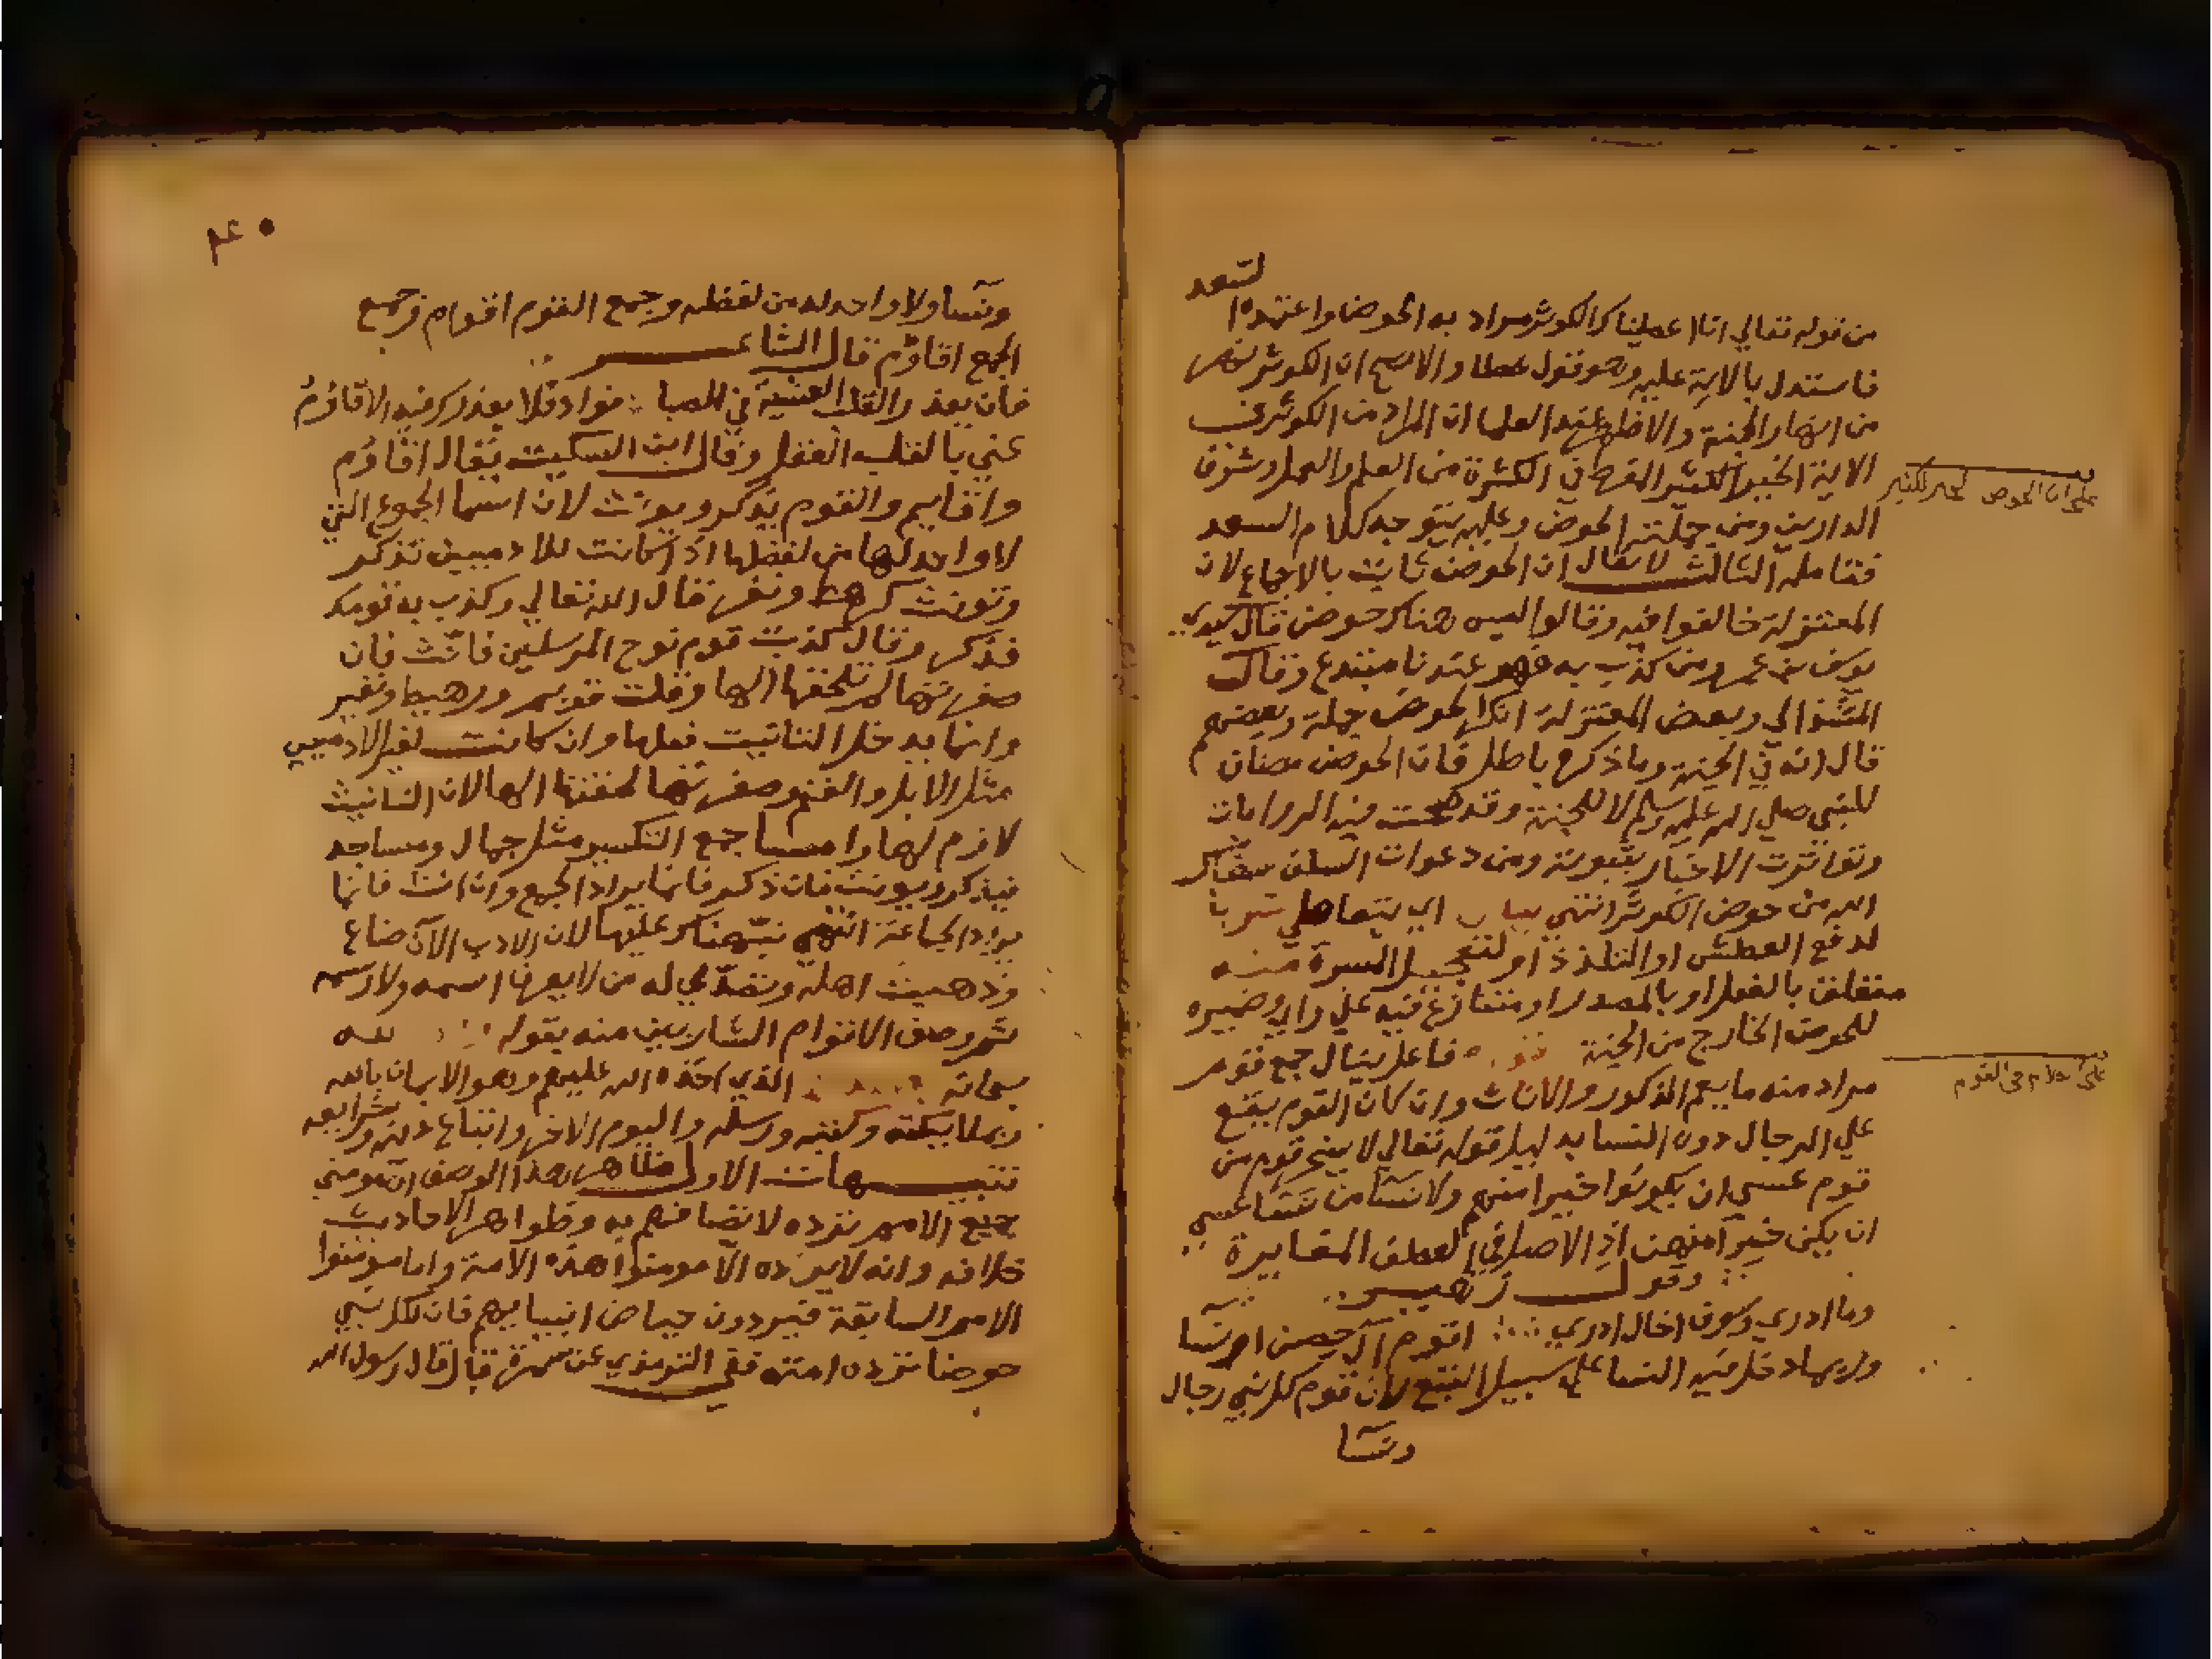 لسعد
من قوله تعالي انا اعطيناك الكوثر مراد به الحوض واعتمده
فاستدل بالاية عليه وهو قول عطا والاصح ان الكوثر نهر
من انهار الجنة والاظهر عند العلما ان المراد من الكوثر في
الاية الخير الكثير المفرط في الكثرة من العلم والعمل وشرف
الدارين ومن جملته الحوض وعليه يتوجه كلام السعد
فتامله الثالث لا يقال ان الحوض ثابت بالاجماع لان
المعتزلة خالفوا فيه وقالوا ليس هناك حوض قال سيدي
يوسف بن عمر ومن كذب به فهو عندنا مبتدع وقال
وبعض المعتزلة انكر الحوض جملة وبعضهم
قال انه في الجنة وما ذكره باطل فان الحوض مضاف
للنبي صلي الله عليه وسلم لا للجنة وقد صحت فيه الروايات
وتواترت الاخبار بثبوته ومن دعوات السلف سقاك
الله من حوض الكوثر انتهي اي يتعاطي شربا
لدفع العطش او التلذذ او لتعجيل المسرة منه
متعلق بالفعل او بالمصدر او متنازع فيه علي راي وضميره
للحوض الخارج من الجنة فاعل ينال جمع قوم
مراد منه ما يعم الذكور والاناث وان كان القوم يقع
علي الرجال دون النسا بدليل قوله تعالي لا يسخر قوم من
قوم عسي ان يكونوا خيرا منهم ولا نسا من نسا عسي
ان يكن خيرا منهن اذ الاصل في العطف المغايرة
وقول زهير
وما ادري وسوف اخال ادري اقوم آل حصن ام نسا
وربما دخل فيه النسا علي سبيل التبع لان قوم كل نبي رجال
ونسا
علي ان الحوض
علي القوم
ونسا ولا واحد له من لفظه وجمع القوم اقوام وجمع
الجمع اقاوم قال الشاعر
فان يعذر القلب العشية في الصبا فوادك لا يعذرك فيه الاقاوم
عني بالقلب العقل وقال ابن السكيت يقال اقاوم
واقايم والقوم يذكر ويونث لان اسما الجموع التي
لا واحد لها من لفظها اذا كانت للادميين تذكر
وتونث كرهط ونفر قال الله تعالي وكذب به قومك
فذكر وقال كذبت قوم نوح المرسلين فانث فان
صغرتها لم تلحقها الها وقلت قويم ورهيط ونفير
وانما يدخل التانيث فعلها وان كانت لغير الادميين
مثل الابل والغنم وصغرتها لحقتها الها لان التانيث
لازم لها واما جمع التكسير مثل جمال ومساجد
فيذكر ويونث فان ذكر فانما يراد الجمع وان انث فانما
يراد الجماعة انتهي نبهناك عليها لان الادب الآن ضاع
وذهبت اهله وتصدي له من لا يعرف اسمه ولا رسمه
ثم وصف الاقوام الشاربين منه بقوله
سبحانه الذي اخذه الله عليهم وهو الايمان بالله
وبملايكته وكتبه ورسله واليوم الاخر واتباع دينه وشرايعه
تنبيهات الاول ظاهر هذا الوصف ان مومني
جميع الامم ترده لاتصافهم به وظواهر الاحاديث
خلافه وانه لا يرده الا مومنوا هذه الامة واما مومنوا
الامم السابقة فيردون حياض انبيايهم فان لكل نبي
حوضا ترده امته ففي الترمذي عن سمرة قال قال رسول الله